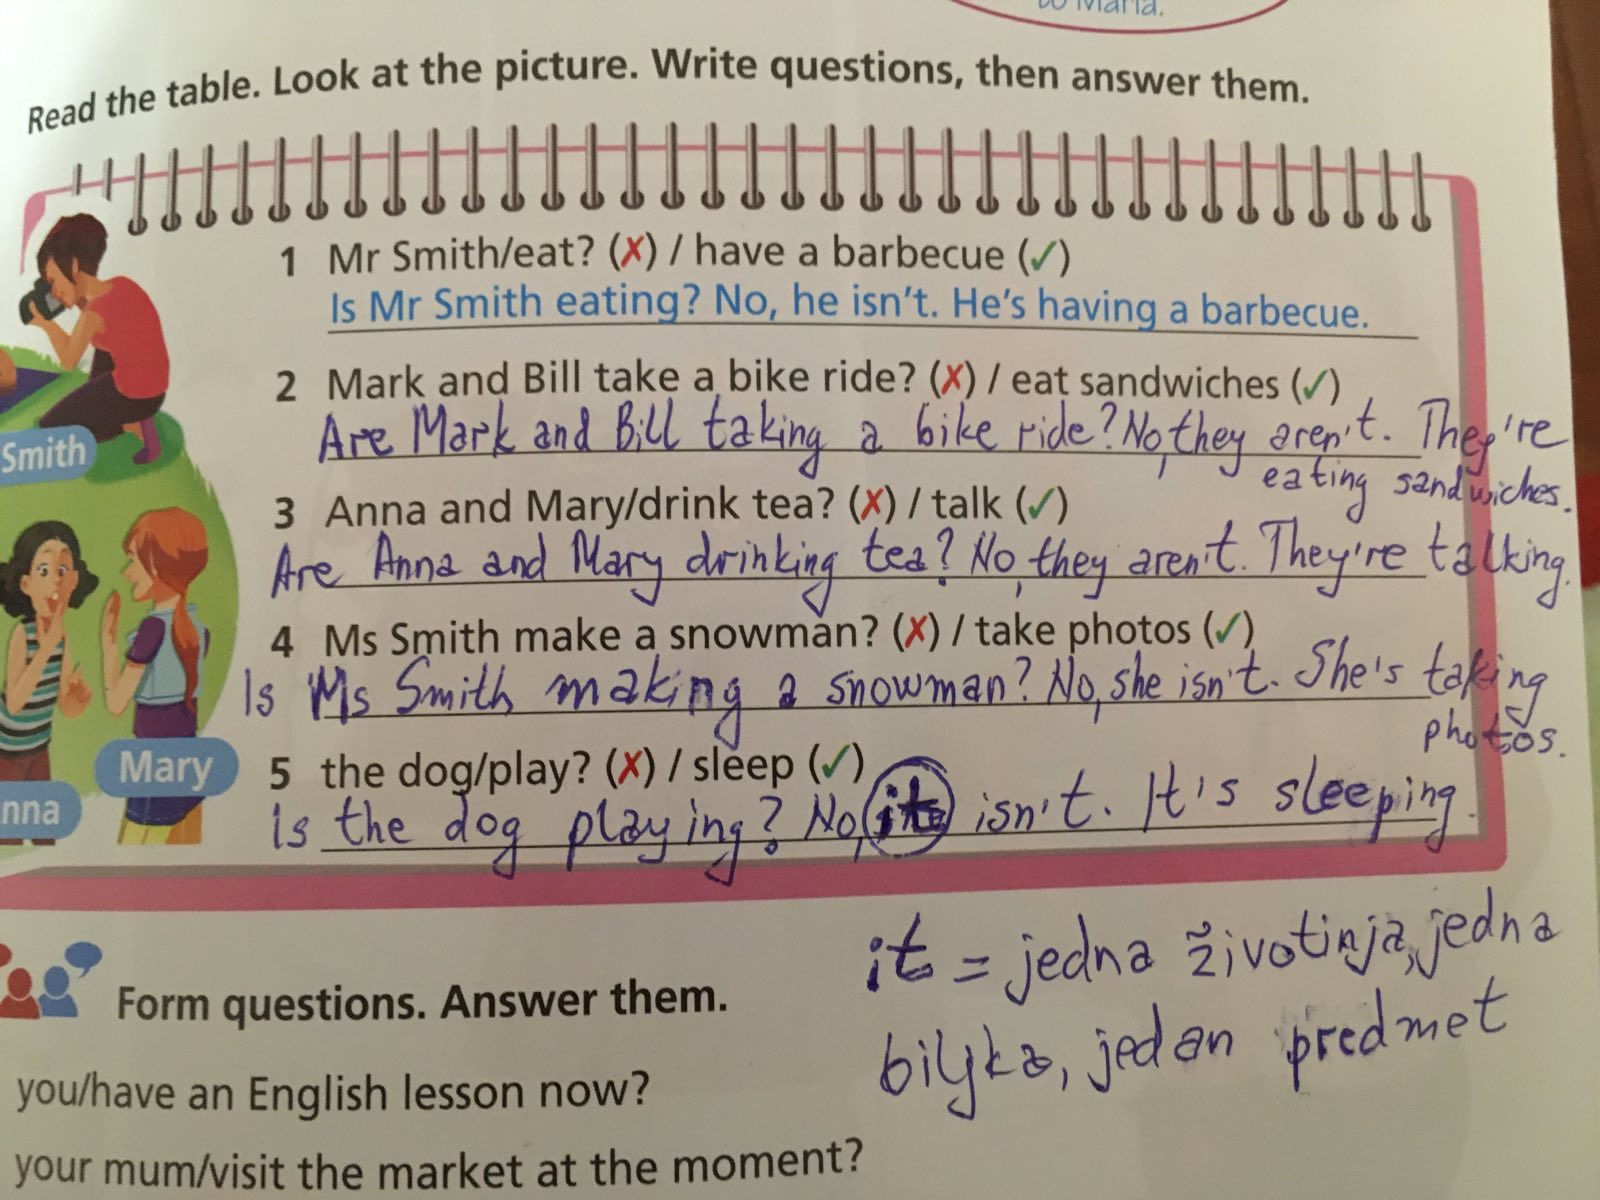 to Maria.
Read the table. Look at the picture. Write questions, then answer them.
1 Mr Smith/eat? (✗) / have a barbecue (✓)
Is Mr Smith eating? No, he isn't. He's having a barbecue.
2 Mark and Bill take a bike ride? (✗) / eat sandwiches (✓)
Are Mark and Bill taking a bike ride? No, they aren't. They're
eating sandwiches.
Smith
3 Anna and Mary/drink tea? (✗) / talk (✓)
Are Anna and Mary drinking tea? No, they aren't. They're talking.
4 Ms Smith make a snowman? (✗) / take photos (✓)
Is Ms Smith making a snowman? No, she isn't. She's taking
photos.
Mary
5 the dog/play? (✗) / sleep (✓)
nna
Is the dog playing? No, it isn't. It's sleeping.
it = jedna životinja, jedna
biljka, jedan predmet
Form questions. Answer them.
you/have an English lesson now?
your mum/visit the market at the moment?